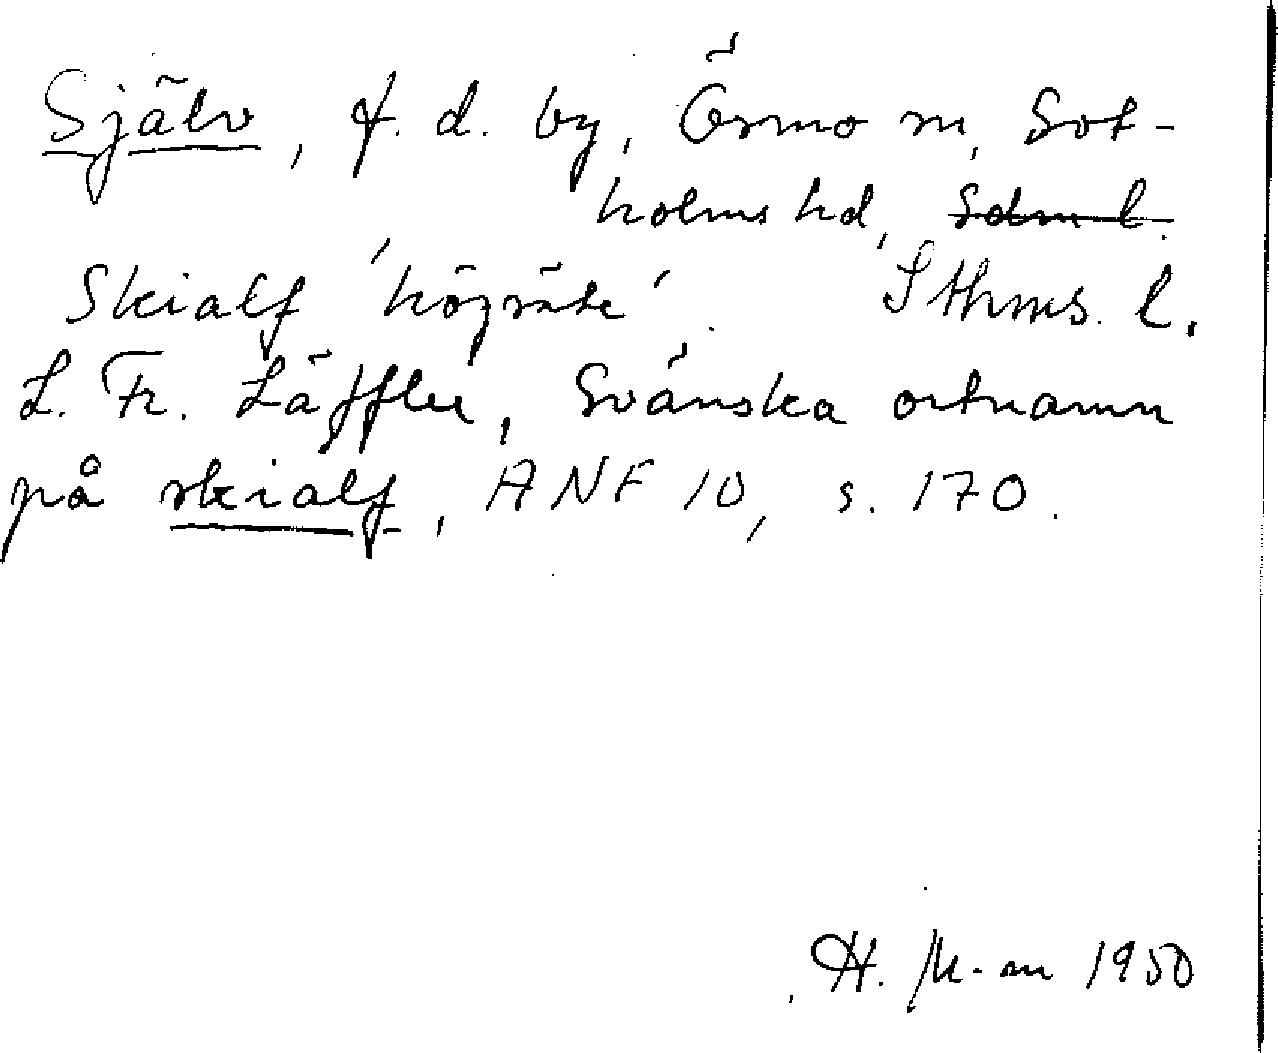 Själv, f. d. by, Ösmo sn, Sot-
holms hd, Sdm l.
Skialf 'högsäte'. Sthms. l.
L. Fr. Läffler, Svänska ortnamn
på skialf, ANF 10, s. 170.
H. M-m 1950